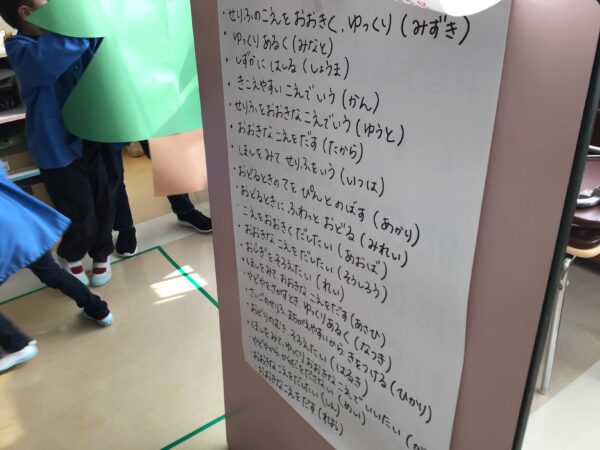 ・せりふのこえを おおきく、ゆっくり (みずき)
・ゆっくり あるく (みなと)
・しずかに はしる (しょうま)
・きこえやすい こえで いう (かん)
・せりふを おおきな こえで いう (ゆうと)
・おおきな こえを だす (たから)
・ほしを みて、せりふを いう (いつは)
・おどるときの てを ぴんと のばす (あかり)
・おどるときに、ふわっと おどる (みれい)
・こえを おおきく だしたい (あおば)
・おおきな こえを だしたい (そうしろう)
・おじぎを そろえたい (れい)
・ほしを みて おおきな こえを だす (あさひ)
・やどやを さがすとき、ゆっくり あるく (なつき)
・さいごの せりふ、まちがえやすいから、きを つける (ひかり)
・おどりの むき そろえたい (はるき)
・ほしを みて、ゆっくり おおきな こえで いいたい (か
・やどやから、からだを ださない (めい)
・おおきな こえを だしたい (しん)
・おおきな こえを だす (れお)